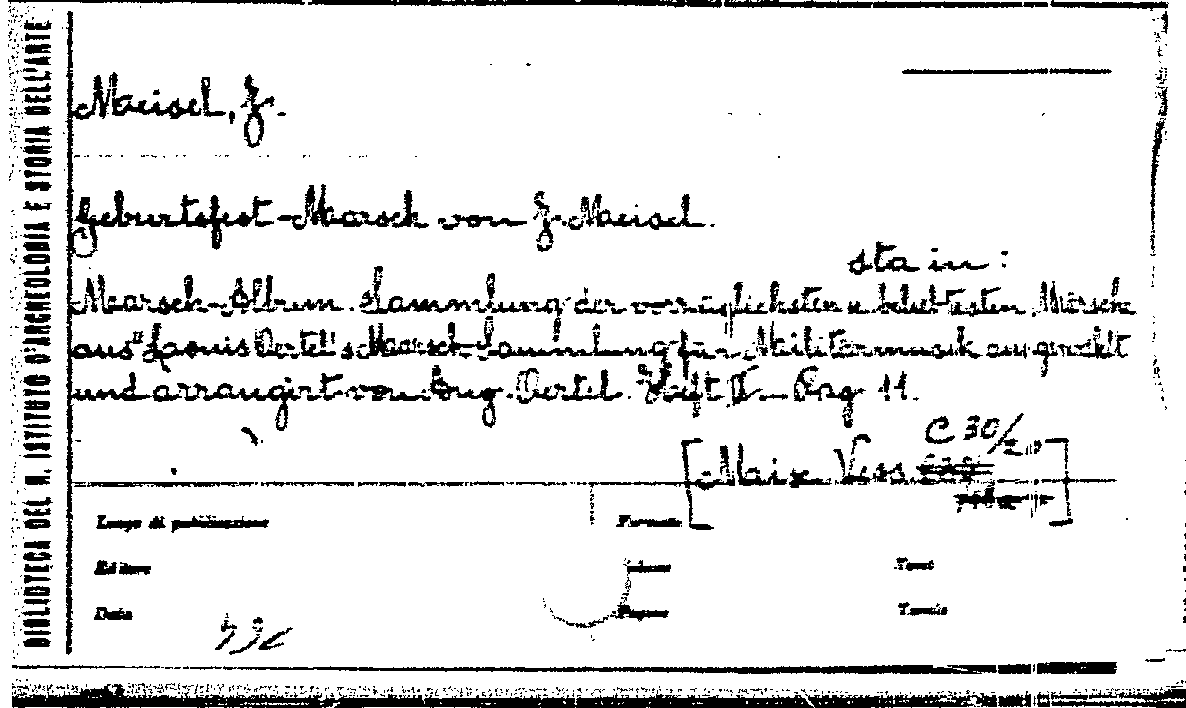 BIBLIOTECA DEL R. ISTITUTO D'ARCHEOLOGIA E STORIA DELL'ARTE
Meisel, F.
Geburtsfest-Marsch von F. Meisel.
sta in:
Marsch-Album. Sammlung der vorzüglichsten u. beliebtesten Märsche
aus "Louis Oertel's Marsch-Sammlung für Militärmusik ausgewählt
und arrangirt von Aug. Oertel. Heft II— Pag 11.
C 30/
[Maix Vess ]
Luogo di pubblicazione
Formato
Editore
Volumi
Tomi
Data
Pagine
Tavole